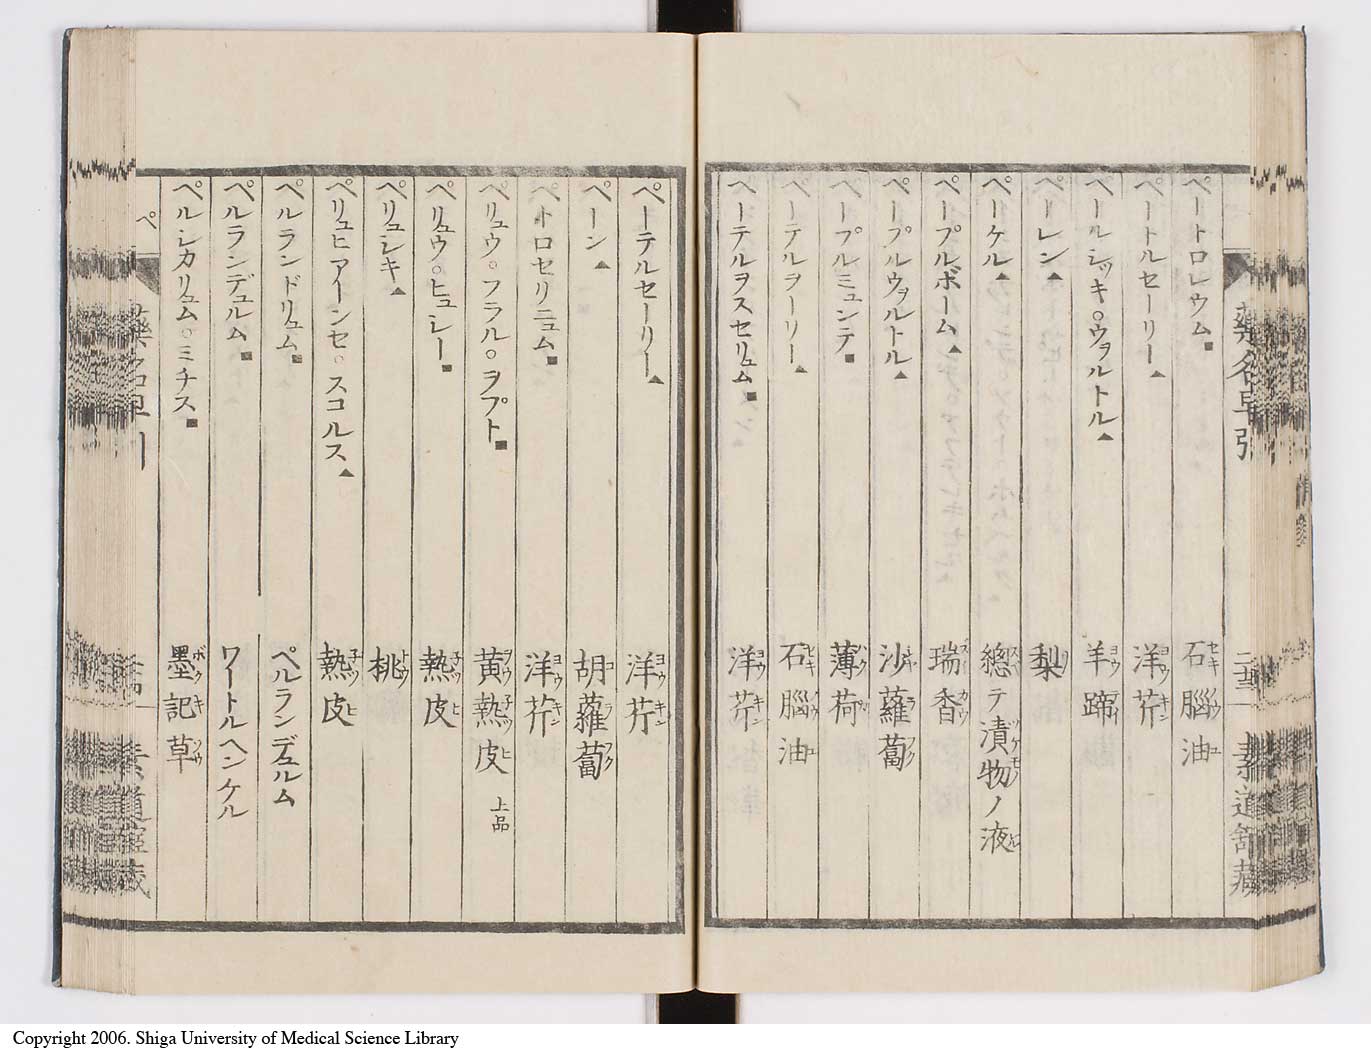 ペートロレウム■ 石腦油
ペートルセーリー▲ 洋芹
ペールシッキ○ウヲルトル▲ 羊蹄
ペーレン▲ 梨
ペーケル▲ 總テ漬物ノ液
ペープルボーム▲ 瑞香
ペープルウヲルトル▲ 沙蘿蔔
ペープルミュンテ■ 薄荷
ペーテルヲーリー▲ 石腦油
ペーテルヲスセリュム■ 洋芹
藥名早引
ペーテルセーリー▲ 洋芹
ペーン▲ 胡蘿蔔
ペトロセリニュム■ 洋芹
ペリュウ○フラル○ヲプト■ 黄熱皮 上品
ペリュウ○ヒュレー■ 熱皮
ペリュシキ▲ 桃
ペリュヒアーンセ○スコルス▲ 熱皮
ペルランドリュム■ ペルランデュルム
ペルランデュルム■ ワートルヘンケル
ペルシカリュム○ミチス■ 墨記草
ペ
Copyright 2006. Shiga University of Medical Science Library